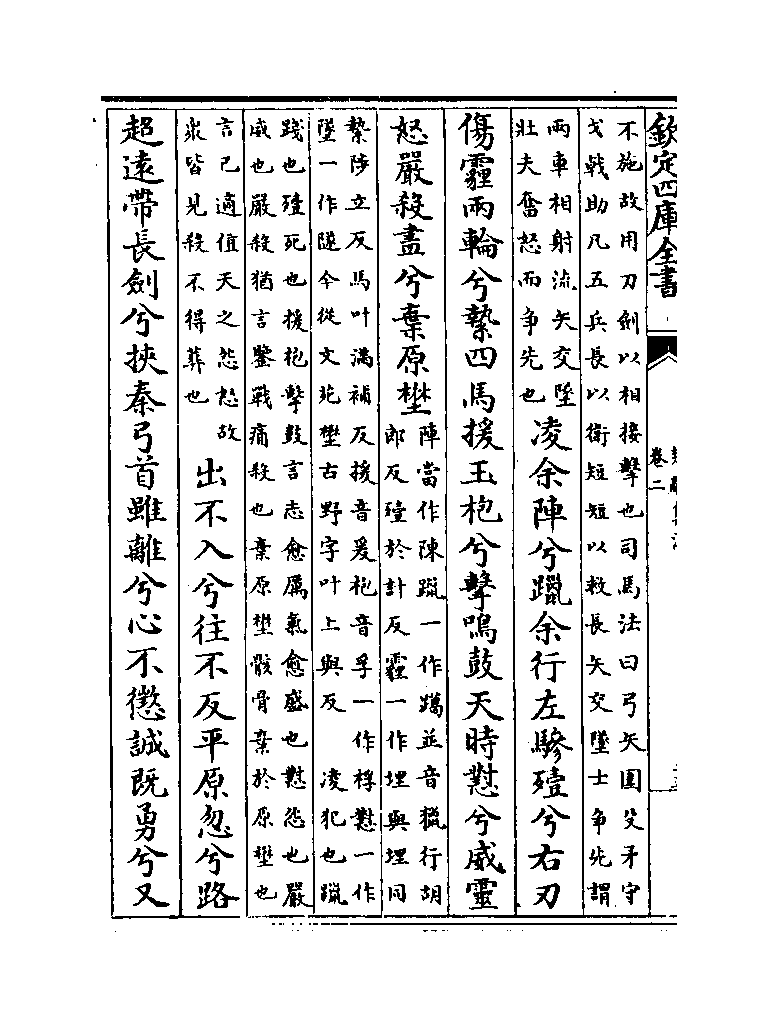 欽定四庫全書
卷二
不施故用刀劍以相接擊也司馬法曰弓矢圍殳矛守
戈戟助凡五兵長以衛短短以救長矢交墜士争先謂
兩車相射流矢交墜
壯夫奮怒而争先也
凌余陣兮躐余行左驂殪兮右刃
傷霾兩輪兮縶四馬援玉枹兮擊鳴鼓天時懟兮威靈
怒嚴殺盡兮棄原壄
陣當作陳躐一作並音獵行胡
郎反殪於計反霾一作埋與埋同
縶陟立反馬叶滿補反援音爰枹音孚一作桴懟一作
墜一作隧今從文苑壄古野字叶上與反 凌犯也躐
踐也殪死也援枹擊鼓言志愈厲氣愈盛也懟怨也嚴
威也嚴殺猶言鏖戰痛殺也棄原壄骸骨棄於原壄也
言己適值天之怨怒故
衆皆見殺不得葬也
出不入兮往不反平原忽兮路
超遠帶長劍兮挾秦弓首雖離兮心不懲誠既勇兮又